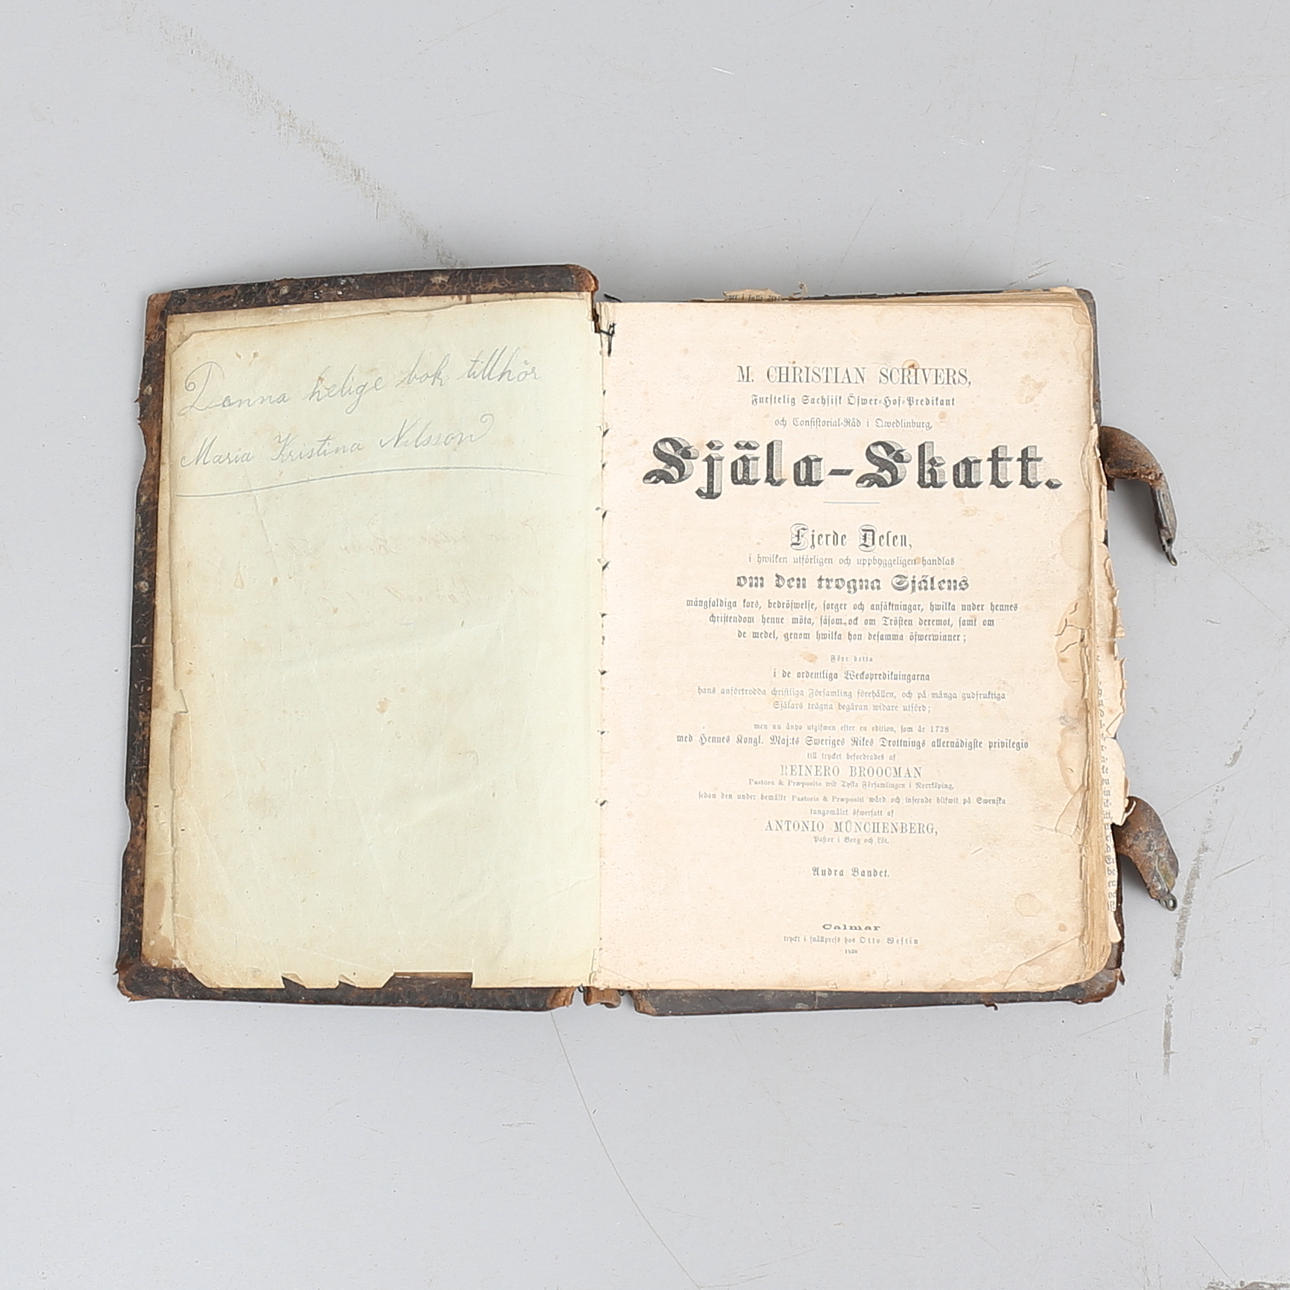 Denna helige bok tillhör
Maria Kristina Nilsson
M. CHRISTIAN SCRIVERS,
Furstelig Sachsisk Öfwer-Hof-Predikant
och Consistorial-Råd i Qwedlinburg,
Själa-Skatt.
Fjerde Delen,
i hwilken utförligen och uppbyggeligen handlas
om den trogna Själens
mångfaldiga kors, bedröfwelse, sorger och anfäktningar, hwilka under hennes
christendom henne möta, såsom ock om Trösten deremot, samt om
de medel, genom hwilka hon desamma öfwerwinner;
Före detta
i de ordentliga Weckopredikningarna
hans anförtrodda christliga Församling förehållen, och på många gudfruktiga
Själars trägna begäran widare utförd;
men nu ånyo utgifwen efter en edition, som år 1728
med Hennes Kongl. Maj:ts Sweriges Rikes Drottnings allernådigste privilegio
till trycket befordrades af
REINERO BROOCMAN
Pastore & Præposito wid Tyska Församlingen i Norrköping,
sedan den under bemälte Pastoris & Præpositi wård och inseende blifwit på Swenska
tungomålet öfwersatt af
ANTONIO MÜNCHENBERG,
Pastor i Borg och Löt.
Andra Bandet.
Calmar
tryckt i snällpress hos Otto Westin